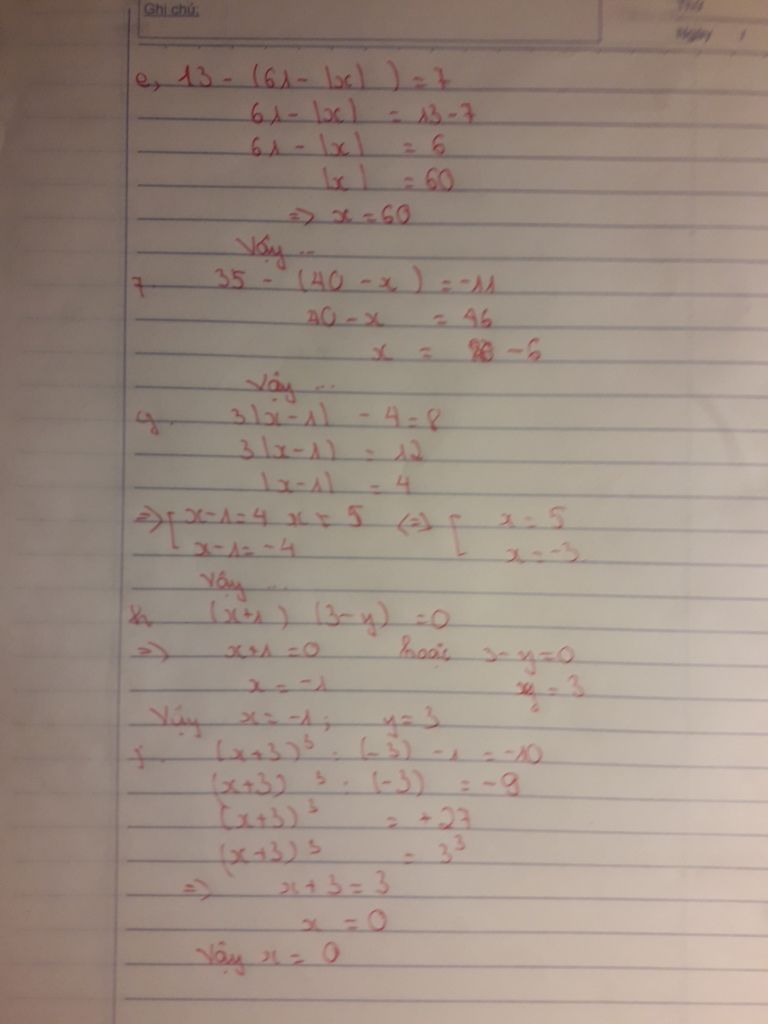 Ghi chú:
Ngày
e, 13 - (61 - |x| ) = 7
61 - |x| = 13 - 7
61 - |x| = 6
|x| = 60
=> x = 60
Vậy ...
7. 35 - (40 - x ) = -11
40 - x = 46
x = -6
Vậy ...
g. 3|x - 1| - 4 = 8
3|x - 1| = 12
|x - 1| = 4
=> [ x - 1 = 4 x = 5 <=> [ x = 5
x - 1 = -4 x = -3
Vậy ...
h. (x+1) (3 - y) = 0
=> x+1 = 0 hoặc 3 - y = 0
x = -1 y = 3
Vậy x = -1 ; y = 3
(x+3)³ : (-3) - 1 = -10
(x+3) ³ : (-3) = -9
(x+3)³ = +27
(x+3)³ = 3³
=> x + 3 = 3
x = 0
Vậy x = 0